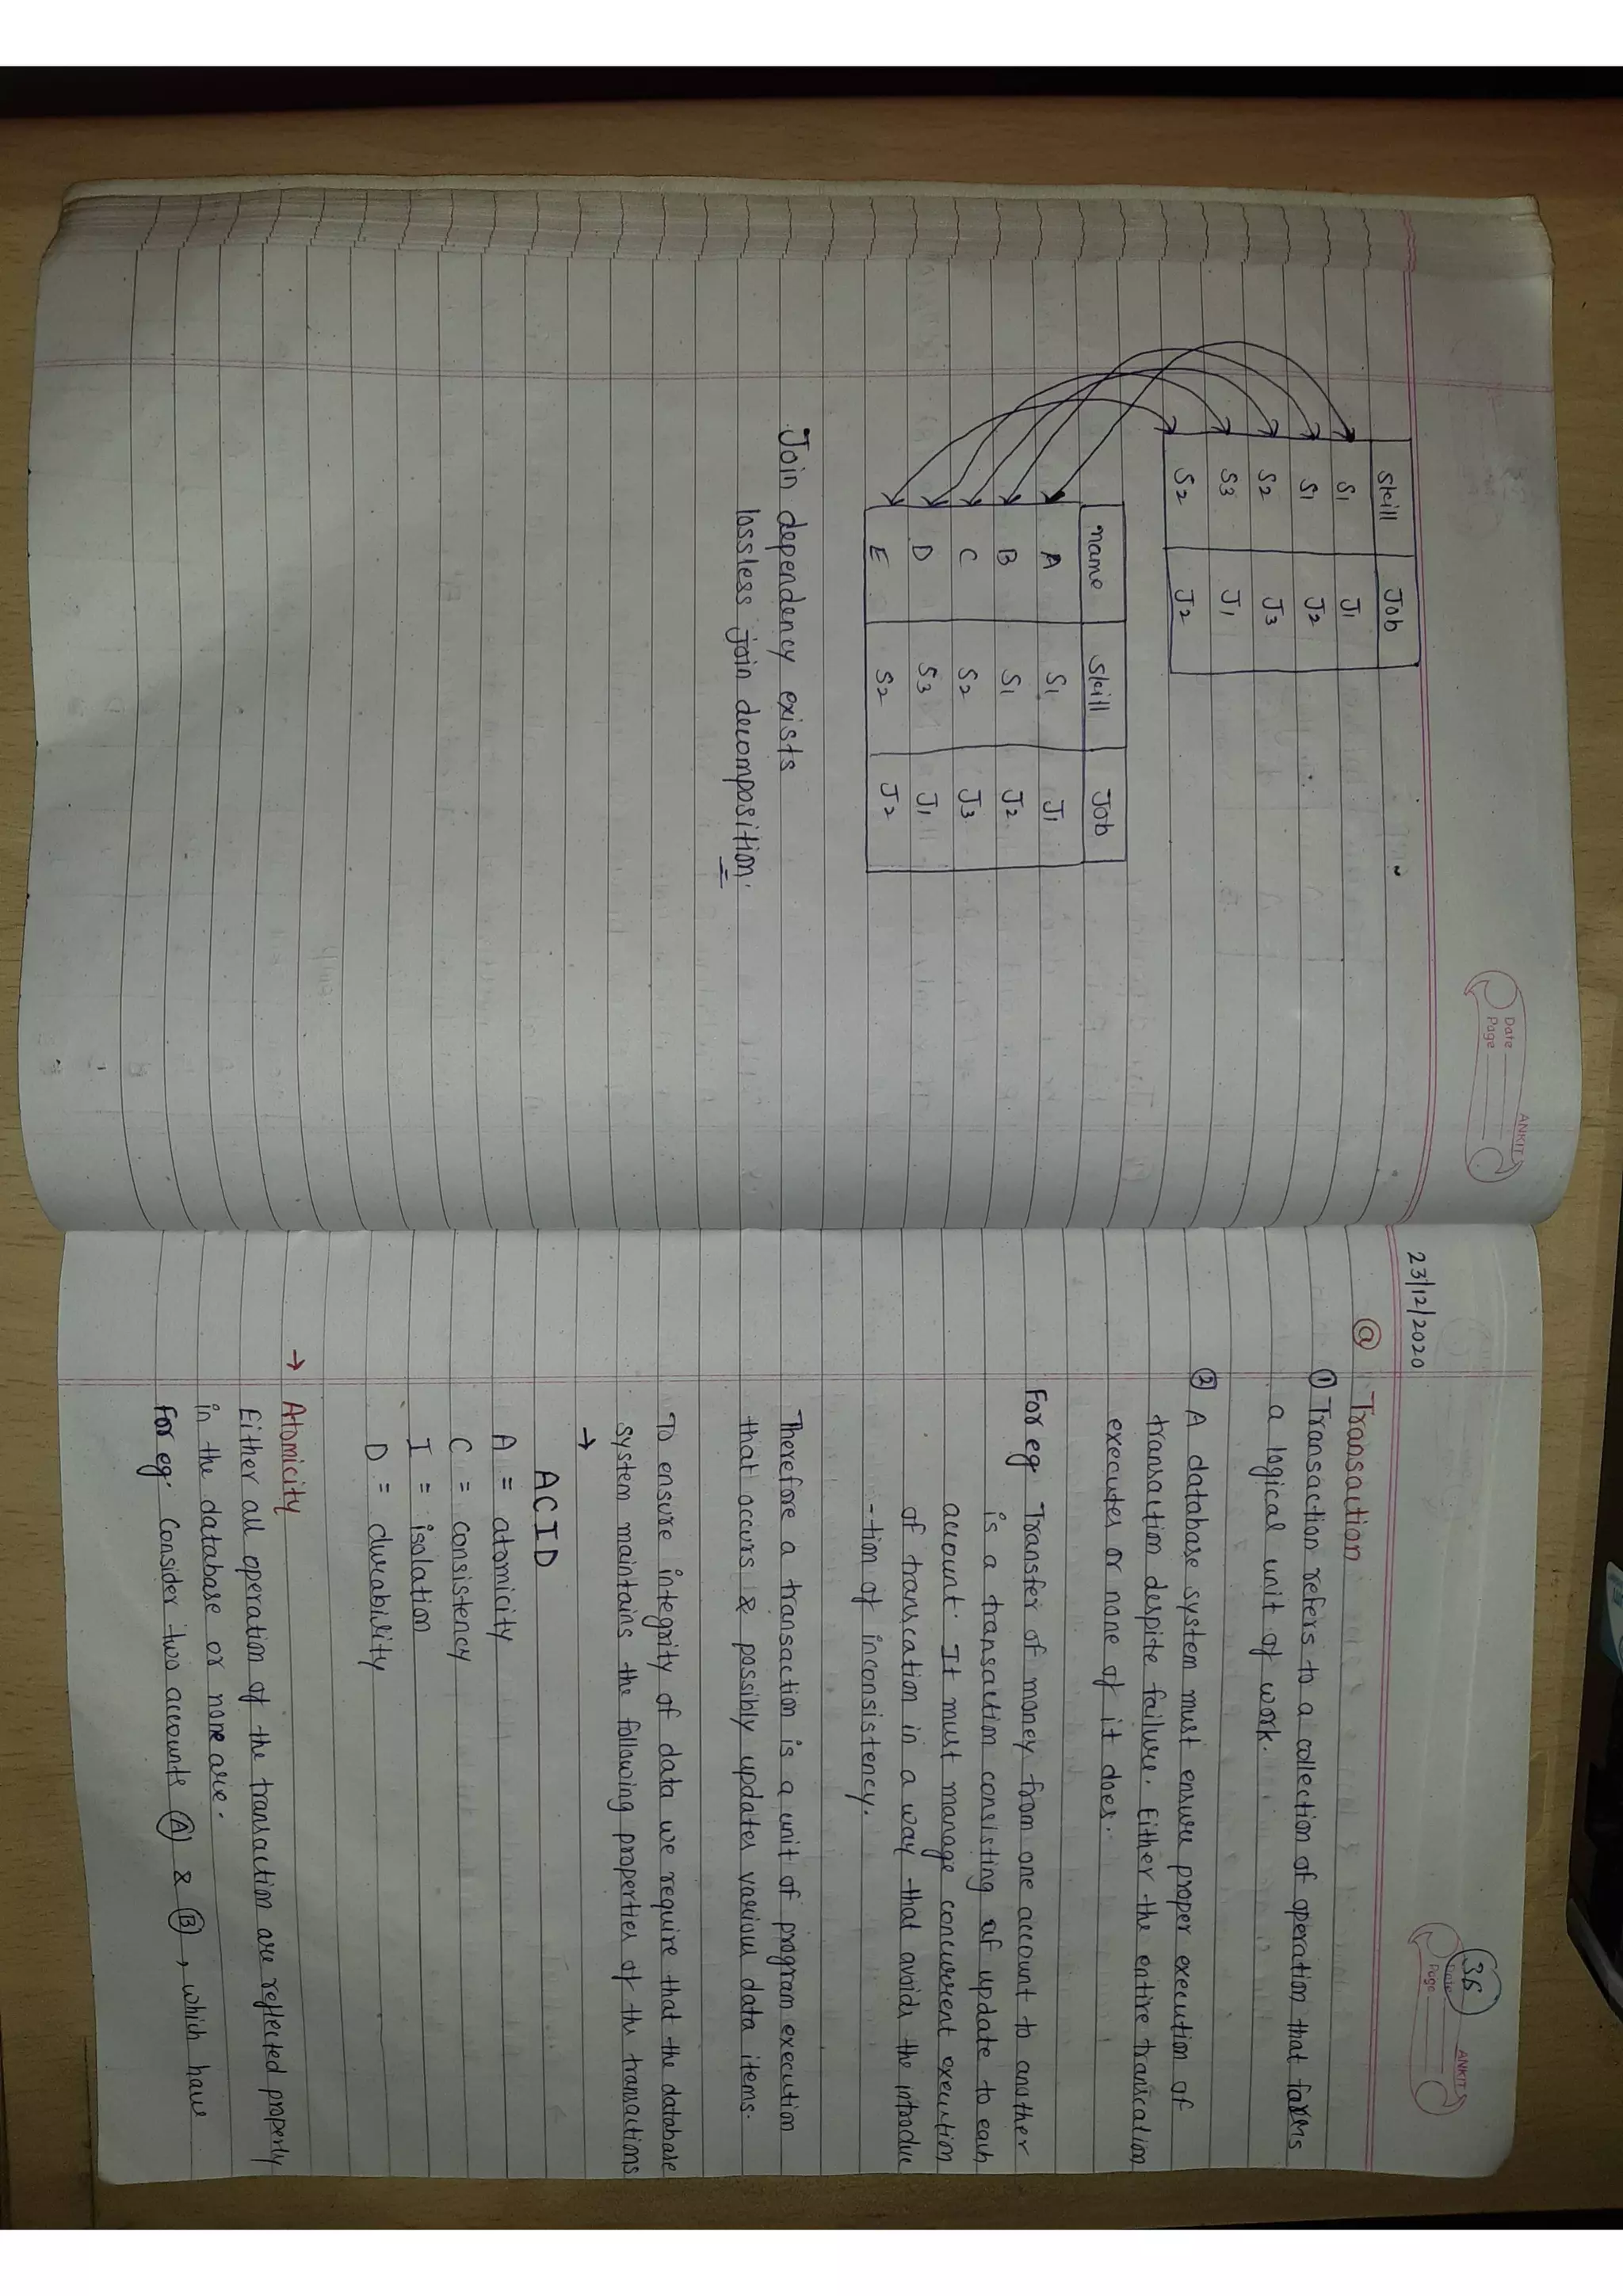 Date
Page
ANKIT
Skill Job
S1 J1
S1 J2
S2 J3
S3 J1
S2 J2
name Skill Job
A S1 J1
B S1 J2
C S2 J3
D S3 J1
E S2 J2
Join dependency exists
lossless join decomposition.
23/12/2020
36
Page
ANKIT
@ Transaction
① Transaction refers to a collection of operation that forms
a logical unit of work.
② A database system must ensure proper execution of
transaction despite failure. Either the entire transcation
executes or none of it does.
For eg Transfer of money from one account to another
is a transaction consisting of update to each
account. It must manage concurrent execution
of transcation in a way that avoids the introduc
-tion of inconsistency.
Therefore a transaction is a unit of program execution
that occurs & possibly updates various data items.
To ensure integrity of data we require that the database
system maintains the following properties of the transactions
→
ACID
A = atomicity
C = consistency
I = isolation
D = durability
→ Atomicity
Either all operation of the transaction are reflected properly
in the database or none are.
For eg. Consider two accounts A & B, which have